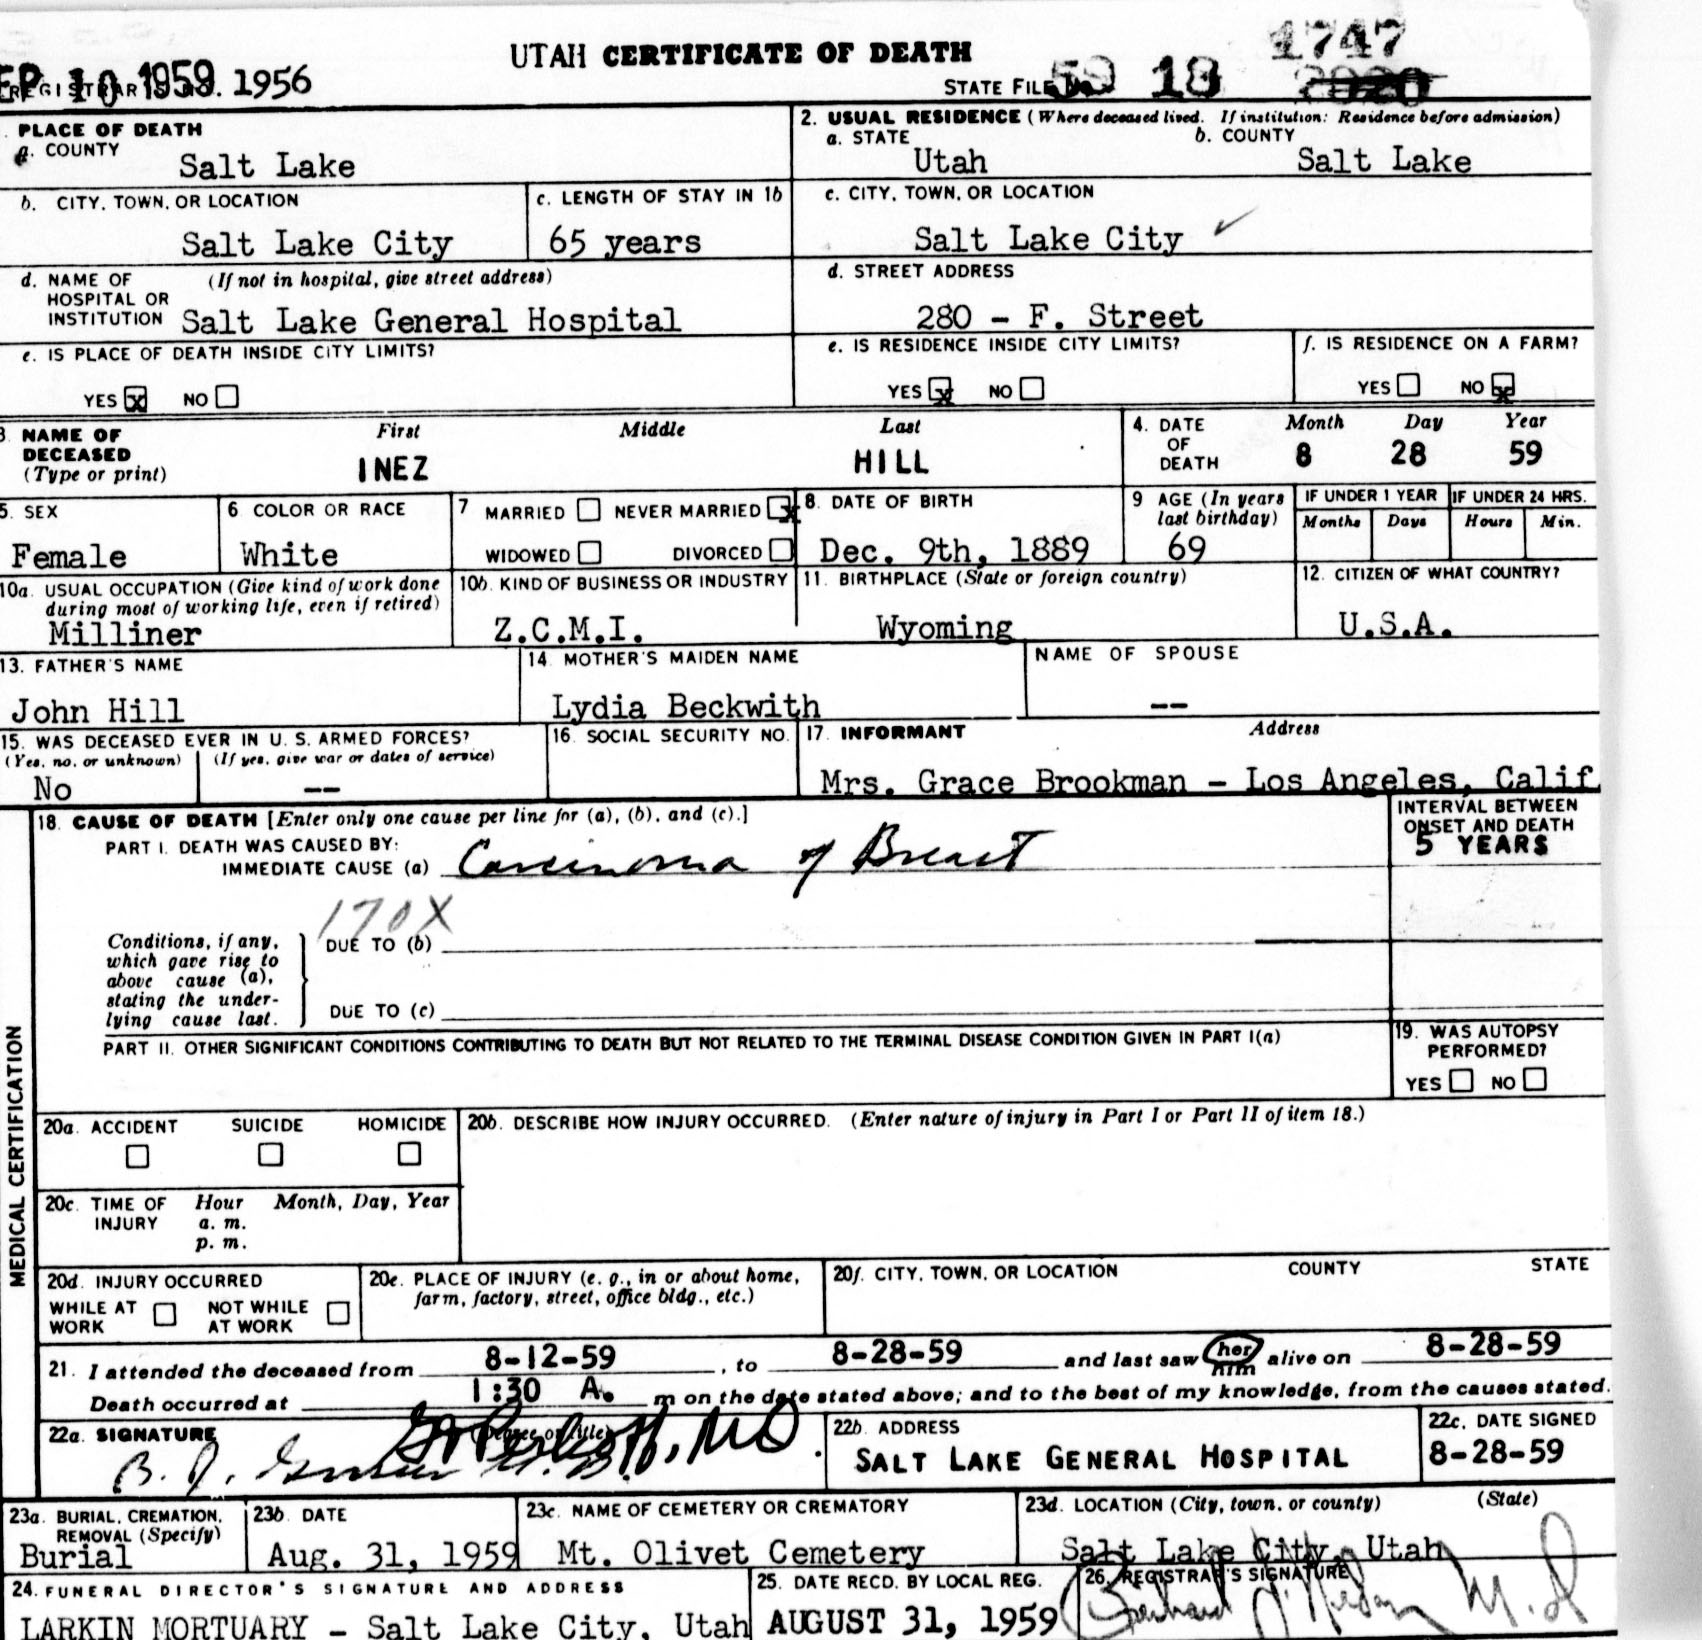 1747
UTAH CERTIFICATE OF DEATH
SEP 10 1959 REGISTRAR'S NO. 1956 STATE FILE NO. 59 18 2020
PLACE OF DEATH
a. COUNTY Salt Lake
2. USUAL RESIDENCE (Where deceased lived. If institution: Residence before admission)
a. STATE Utah b. COUNTY Salt Lake
b. CITY, TOWN, OR LOCATION Salt Lake City
c. LENGTH OF STAY IN 1b 65 years
c. CITY, TOWN, OR LOCATION Salt Lake City ✓
d. NAME OF HOSPITAL OR INSTITUTION (If not in hospital, give street address) Salt Lake General Hospital
d. STREET ADDRESS 280 - F. Street
e. IS PLACE OF DEATH INSIDE CITY LIMITS? YES X NO
e. IS RESIDENCE INSIDE CITY LIMITS? YES X NO
f. IS RESIDENCE ON A FARM? YES NO X
3. NAME OF DECEASED (Type or print) First INEZ Middle Last HILL
4. DATE OF DEATH Month 8 Day 28 Year 59
5. SEX Female
6 COLOR OR RACE White
7 MARRIED NEVER MARRIED X WIDOWED DIVORCED
8. DATE OF BIRTH Dec. 9th, 1889
9 AGE (In years last birthday) 69
IF UNDER 1 YEAR Months Days
IF UNDER 24 HRS. Hours Min.
10a. USUAL OCCUPATION (Give kind of work done during most of working life, even if retired) Milliner
10b. KIND OF BUSINESS OR INDUSTRY Z.C.M.I.
11. BIRTHPLACE (State or foreign country) Wyoming
12. CITIZEN OF WHAT COUNTRY? U.S.A.
13. FATHER'S NAME John Hill
14. MOTHER'S MAIDEN NAME Lydia Beckwith
NAME OF SPOUSE --
15. WAS DECEASED EVER IN U. S. ARMED FORCES?
(Yes, no, or unknown) No (If yes, give war or dates of service) --
16. SOCIAL SECURITY NO.
17. INFORMANT Address
Mrs. Grace Brookman - Los Angeles, Calif.
MEDICAL CERTIFICATION
18. CAUSE OF DEATH [Enter only one cause per line for (a), (b), and (c).]
INTERVAL BETWEEN ONSET AND DEATH
PART I. DEATH WAS CAUSED BY:
IMMEDIATE CAUSE (a) Carcinoma of Breast 5 YEARS
170X
Conditions, if any, which gave rise to above cause (a), stating the underlying cause last.
DUE TO (b)
DUE TO (c)
PART II. OTHER SIGNIFICANT CONDITIONS CONTRIBUTING TO DEATH BUT NOT RELATED TO THE TERMINAL DISEASE CONDITION GIVEN IN PART I(a)
19. WAS AUTOPSY PERFORMED? YES NO
20a. ACCIDENT SUICIDE HOMICIDE
20b. DESCRIBE HOW INJURY OCCURRED. (Enter nature of injury in Part I or Part II of item 18.)
20c. TIME OF INJURY Hour a. m. p. m. Month, Day, Year
20d. INJURY OCCURRED WHILE AT WORK NOT WHILE AT WORK
20e. PLACE OF INJURY (e. g., in or about home, farm, factory, street, office bldg., etc.)
20f. CITY, TOWN, OR LOCATION COUNTY STATE
21. I attended the deceased from 8-12-59, to 8-28-59 and last saw her him alive on 8-28-59
Death occurred at 1:30 A. m on the date stated above; and to the best of my knowledge, from the causes stated.
22a. SIGNATURE (Degree or title) M.D.
22b. ADDRESS SALT LAKE GENERAL HOSPITAL
22c. DATE SIGNED 8-28-59
23a. BURIAL, CREMATION, REMOVAL (Specify) Burial
23b. DATE Aug. 31, 1959
23c. NAME OF CEMETERY OR CREMATORY Mt. Olivet Cemetery
23d. LOCATION (City, town, or county) (State) Salt Lake City, Utah
24. FUNERAL DIRECTOR'S SIGNATURE AND ADDRESS
LARKIN MORTUARY - Salt Lake City, Utah
25. DATE RECD. BY LOCAL REG. AUGUST 31, 1959
26. REGISTRAR'S SIGNATURE M.D.